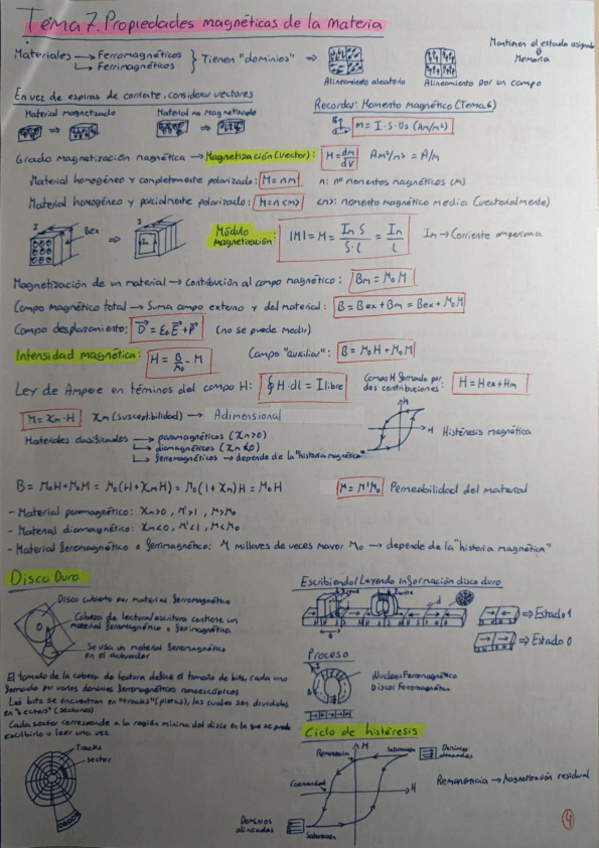 Tema 7. Propiedades magnéticas de la materia
Materiales → Ferromagnéticos
↳ Ferrimagnéticos
} Tienen "dominios" ⇒
Alineamiento aleatorio
Alineamiento por un campo
Mantienen el estado asignado
Memoria
En vez de espiras de corriente, considerar vectores
Material magnetizado
Material no magnetizado
Recordar: Momento magnético (Tema 6)
m = I · S · Us (Am/m²)
Grado magnetización magnética → Magnetización (vector): M = dm/dV Am²/m³ = A/m
Material homogéneo y completamente polarizado: M = nm n: nº momentos magnéticos (m)
Material homogéneo y parcialmente polarizado: M = n<m> <m>: momento magnético medio (vectorialmente)
I Bex ⇒ I
Módulo magnetización: |M| = M = Im S / S·l = Im / l Im → Corriente amperiana
Magnetización de un material → contribución al campo magnético: Bm = M₀M
Campo magnético total → Suma campo externo y del material: B = Bex + Bm = Bex + M₀M
Campo desplazamiento: D = ε₀E + P (no se puede medir)
Intensidad magnética: H = B/M₀ - M Campo "auxiliar": B = M₀H + M₀M
Ley de Ampere en téminos del campo H: ∮H·dl = I libre
Campo H formado por dos contribuciones: H = Hex + Hm
M = Xm·H Xm (susceptibilidad) → Adimensional
Materiales clasificados → paramagnéticos (Xm>0)
↳ diamagnéticos (Xm<0)
↳ ferromagnéticos → depende de la "historia magnética"
M
H
Histéresis magnética
B = M₀H + M₀M = M₀(H + XmH) = M₀(1 + Xm)H = M₀H
M = M'M₀ Permeabilidad del material
- Material paramagnético: Xm>0, M'>1, M>M₀
- Material diamagnético: Xm<0, M'<1, M<M₀
- Material ferromagnético o ferrimagnético: M millones de veces mayor M₀ → depende de la "historia magnética"
Disco Duro
Disco cubierto por material ferromagnético
Cabeza de lectura/escritura contiene un
material ferromagnético o ferrimagnético
Se usa un material ferromagnético
en el actuador
El tamaño de la cabeza de lectura define el tamaño de bits, cada uno
formado por varios dominios ferromagnéticos nanoscópicos
Los bits se encuentran en "tracks" (pistas), los cuales son divididos
en "sectors" (sectores)
Cada sector corresponde a la región mínima del disco en la que se puede
escribirlo o leer una vez
Tracks
sector
Escribiendo/Leyendo información disco duro
d
⇒ Estado 1
⇒ Estado 0
Proceso
Núcleo: Ferromagnético
Disco: Ferromagnético
Ciclo de histéresis
Remanencia
M
Saturación
Dominios alineados
Coercividad
H
Dominios alineados
Saturación
Remanencia → Magnetización residual
4